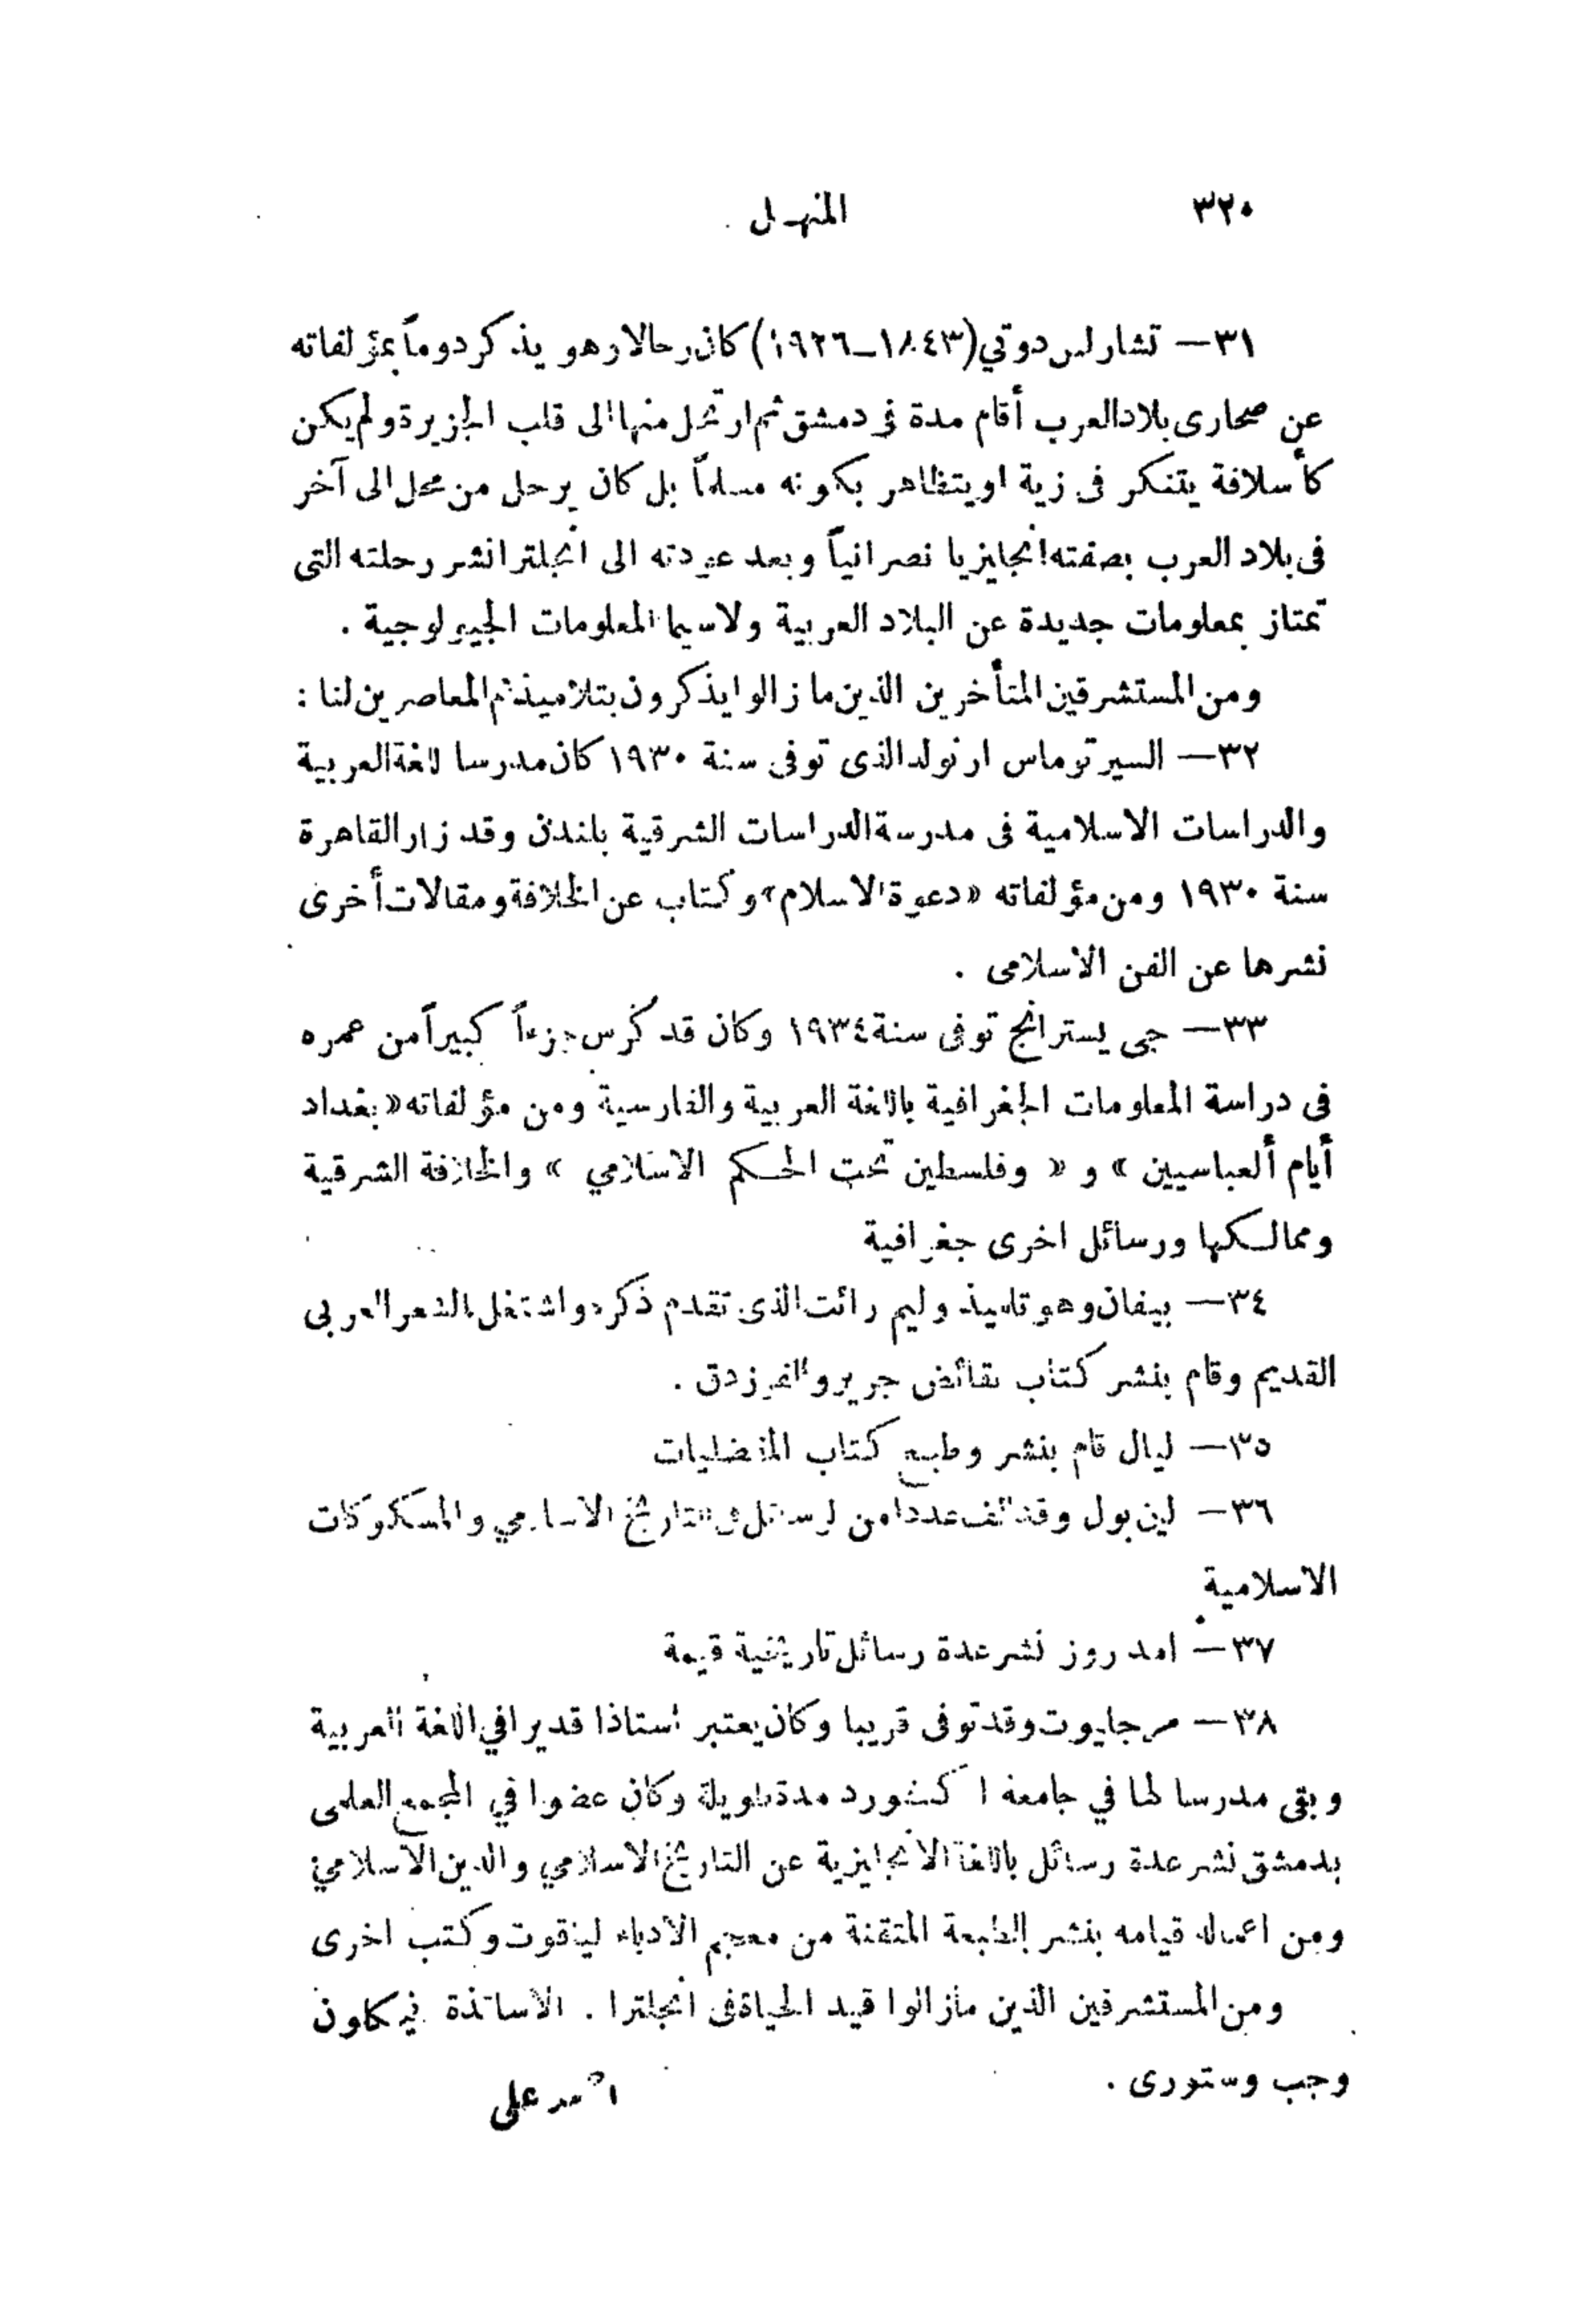 ٣٢٠ المنهل
٣١— تشارلس دوتي (١٨٤٣_١٩٢٦) كان رحالا وهو يذكر دوماً بمؤلفاته
عن صحارى بلاد العرب أقام مدة فى دمشق ثم ارتحل منها الى قلب الجزيرة ولم يكن
كأسلافة يتنكر فى زية او يتظاهر بكونه مسلماً بل كان يرحل من محل الى آخر
فى بلاد العرب بصفته انجليزيا نصرانياً وبعد عودته الى انجلترا نشر رحلته التى
تمتاز بمعلومات جديدة عن البلاد العربية ولا سيما المعلومات الجيولوجية .
ومن المستشرقين المتأخرين الذين ما زالوا يذكرون بتلاميذهم المعاصرين لنا :
٣٢— السير توماس ارنولد الذى توفى سنة ١٩٣٠ كان مدرسا للغة العربية
والدراسات الاسلامية فى مدرسة الدراسات الشرقية بلندن وقد زار القاهرة
سنة ١٩٣٠ ومن مؤلفاته «دعوة الاسلام» وكتاب عن الخلافة ومقالات أخرى
نشرها عن الفن الاسلامى .
٣٣— جى يسترانج توفى سنة ١٩٣٤ وكان قد كرس جزءاً كبيراً من عمره
فى دراسة المعلومات الجغرافية باللغة العربية والفارسية ومن مؤلفاته «بغداد
أيام ألعباسيين » و « وفلسطين تحت الحكم الاسلامي » والخلافة الشرقية
وممالكها ورسائل اخرى جغرافية
٣٤— بيفان وهو تلميذ وليم رائت الذى تقدم ذكره واشتغل بالشعر العربى
القديم وقام بنشر كتاب نقائض جرير والفرزدق .
٣٥— ليال قام بنشر وطبع كتاب المفضليات
٣٦— لين بول وقد ألف عددا من الرسائل فى التاريخ الاسلامي والمسكوكات
الاسلامية
٣٧— امد روز نشر عدة رسائل تاريخية قيمة
٣٨— مرجليوت وقد توفى قريبا وكان يعتبر استاذا قديرا في اللغة العربية
وبقى مدرسا لها في جامعة اكسفورد مدة طويلة وكان عضوا في المجمع العلمى
بدمشق نشر عدة رسائل باللغة الانجليزية عن التاريخ الاسلامي والدين الاسلامي
ومن اعماله قيامه بنشر الطبعة المتقنة من معجم الادباء لياقوت وكتب اخرى
ومن المستشرقين الذين مازالوا قيد الحياة فى انجلترا . الاساتذة نيكلون
وجب وستورى .
احمد على